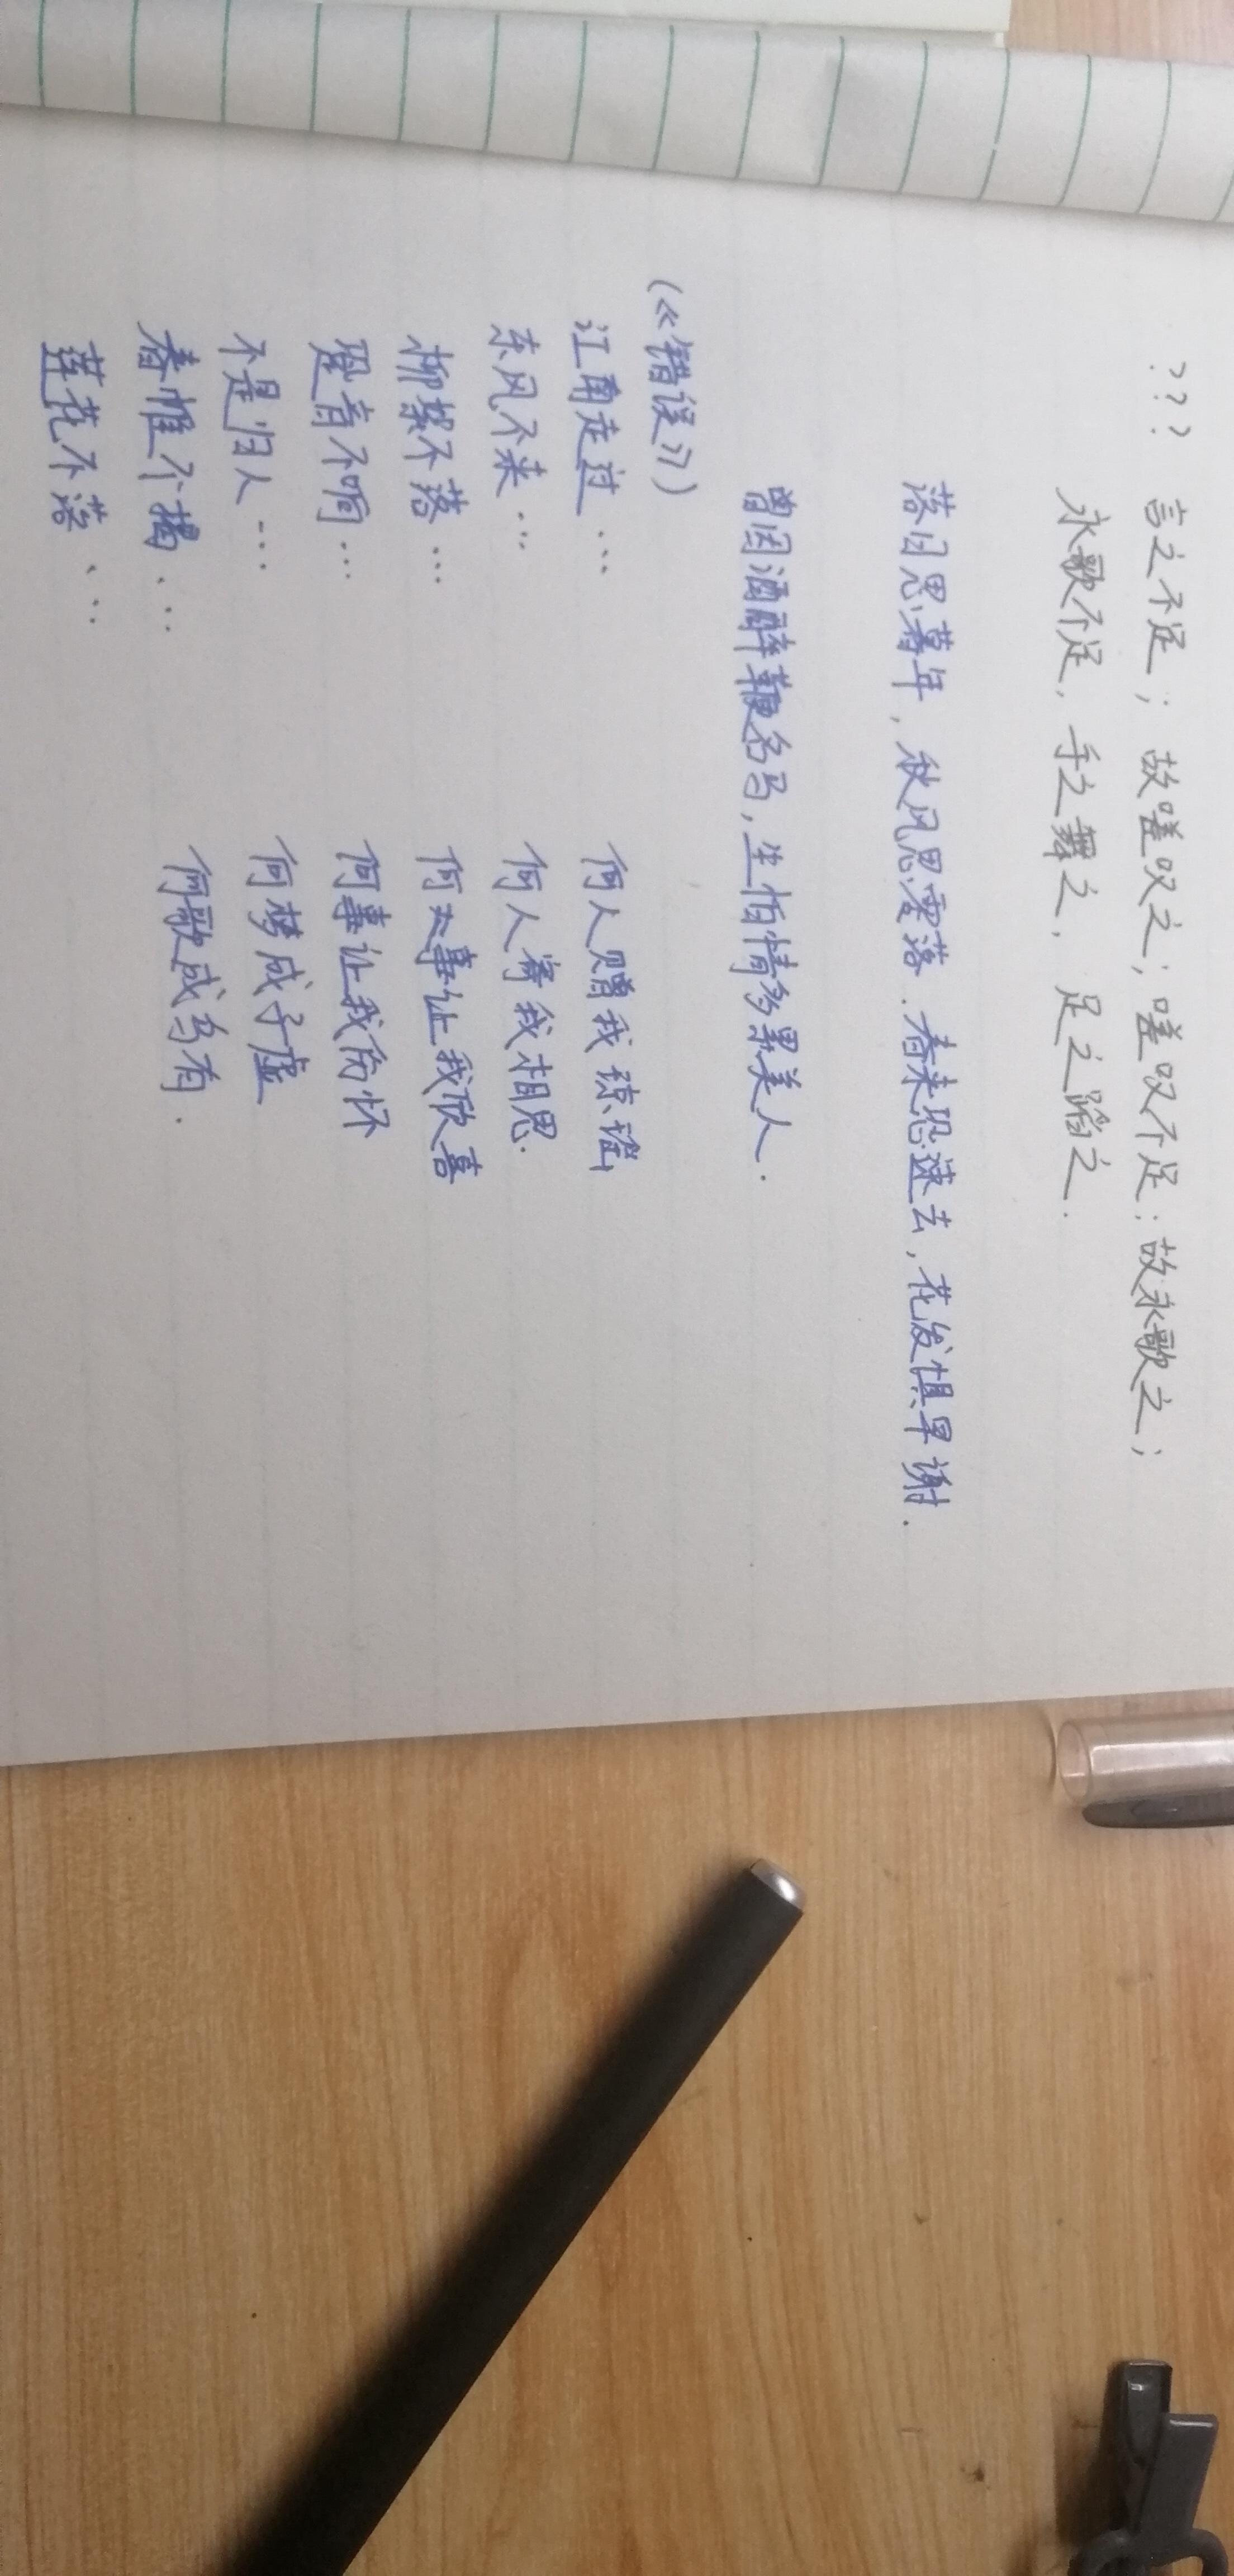 ??? 言之不足；故嗟叹之；嗟叹不足；故永歌之；
永歌不足，手之舞之，足之蹈之.
落日思暮年，秋风思零落.春来恐速去，花发惧早谢.
曾因酒醉鞭名马，生怕情多累美人.
（《错误》）
江南走过… 何人赠我琼瑶
东风不来… 何人寄我相思.
柳絮不落… 何事让我欣喜
跫音不响… 何事让我伤怀
不是归人… 何梦成子虚
春帷不揭… 何歌成乌有.
莲花不落…